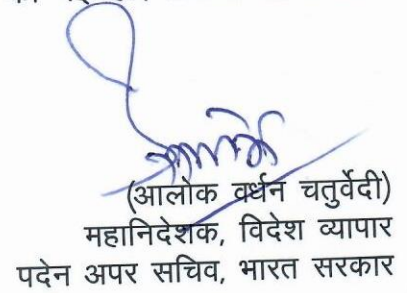 (आलोक वर्धन चतुर्वेदी)
महानिदेशक, विदेश व्यापार
पदेन अपर सचिव, भारत सरकार